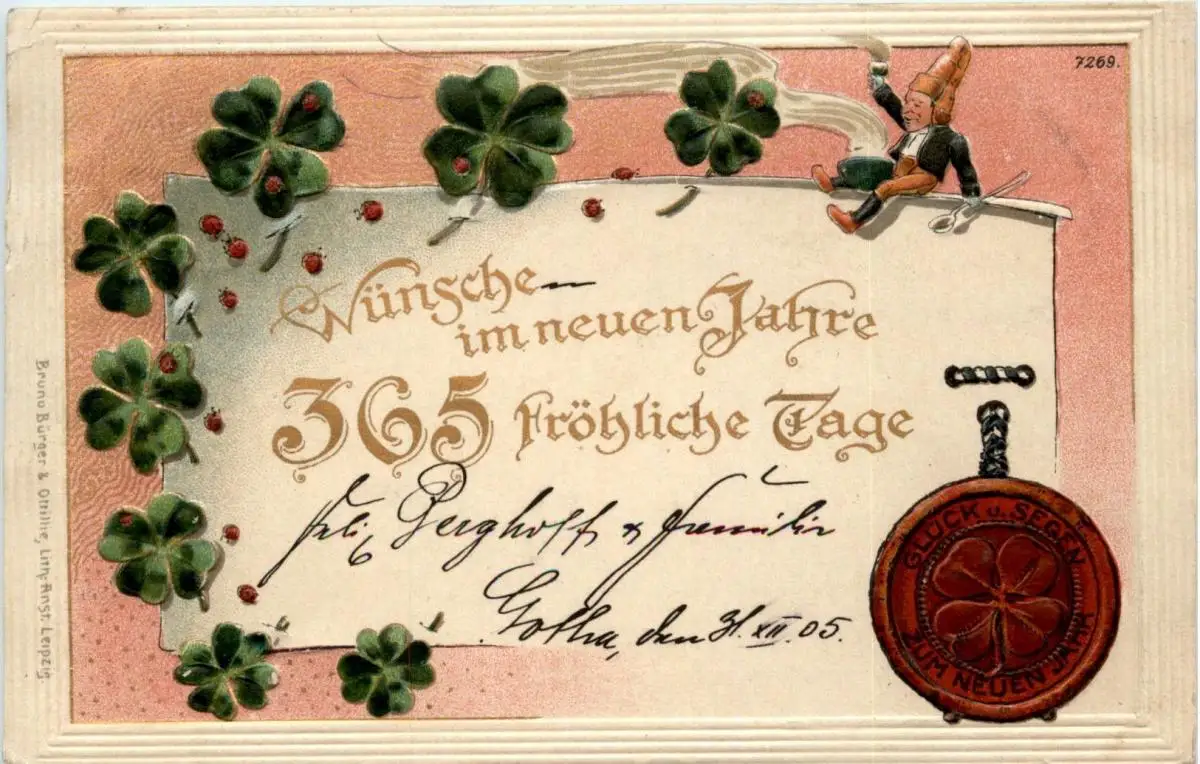 7269.
Wünsche
im neuen Jahre
365 fröhliche Tage
Berghoff & Familie
Gotha, den 31. XII. 05.
GLÜCK u. SEGEN
ZUM NEUEN JAHR
Bruno Bürger & Ottillie, Lith. Anst. Leipzig.